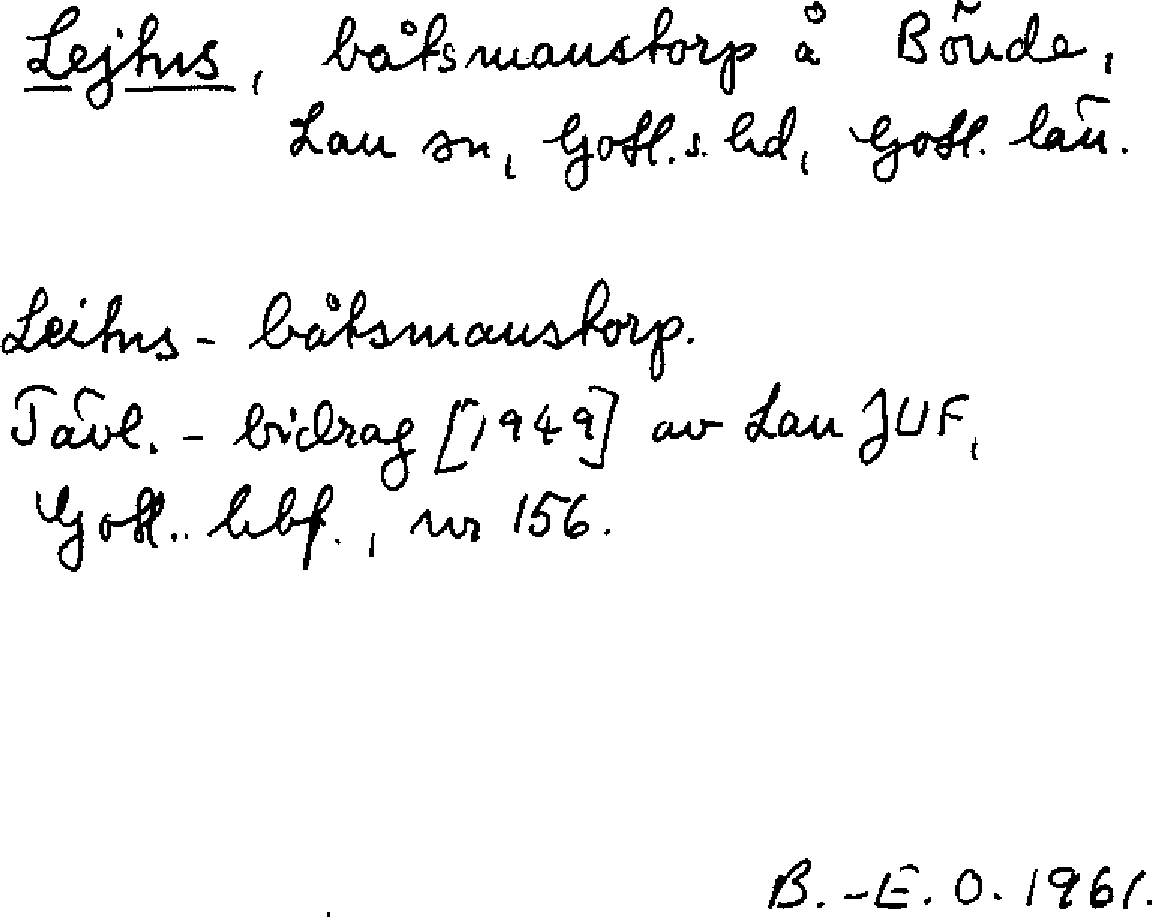 Lejhus, båtsmanstorp å Bönde,
Lau sn, Gotl. s. hd, Gotl. län.
Leihus - båtsmanstorp.
Tävl. - bidrag [1949] av Lau JUF,
Gotl. hbf., nr 156.
B. -E. O. 1961.